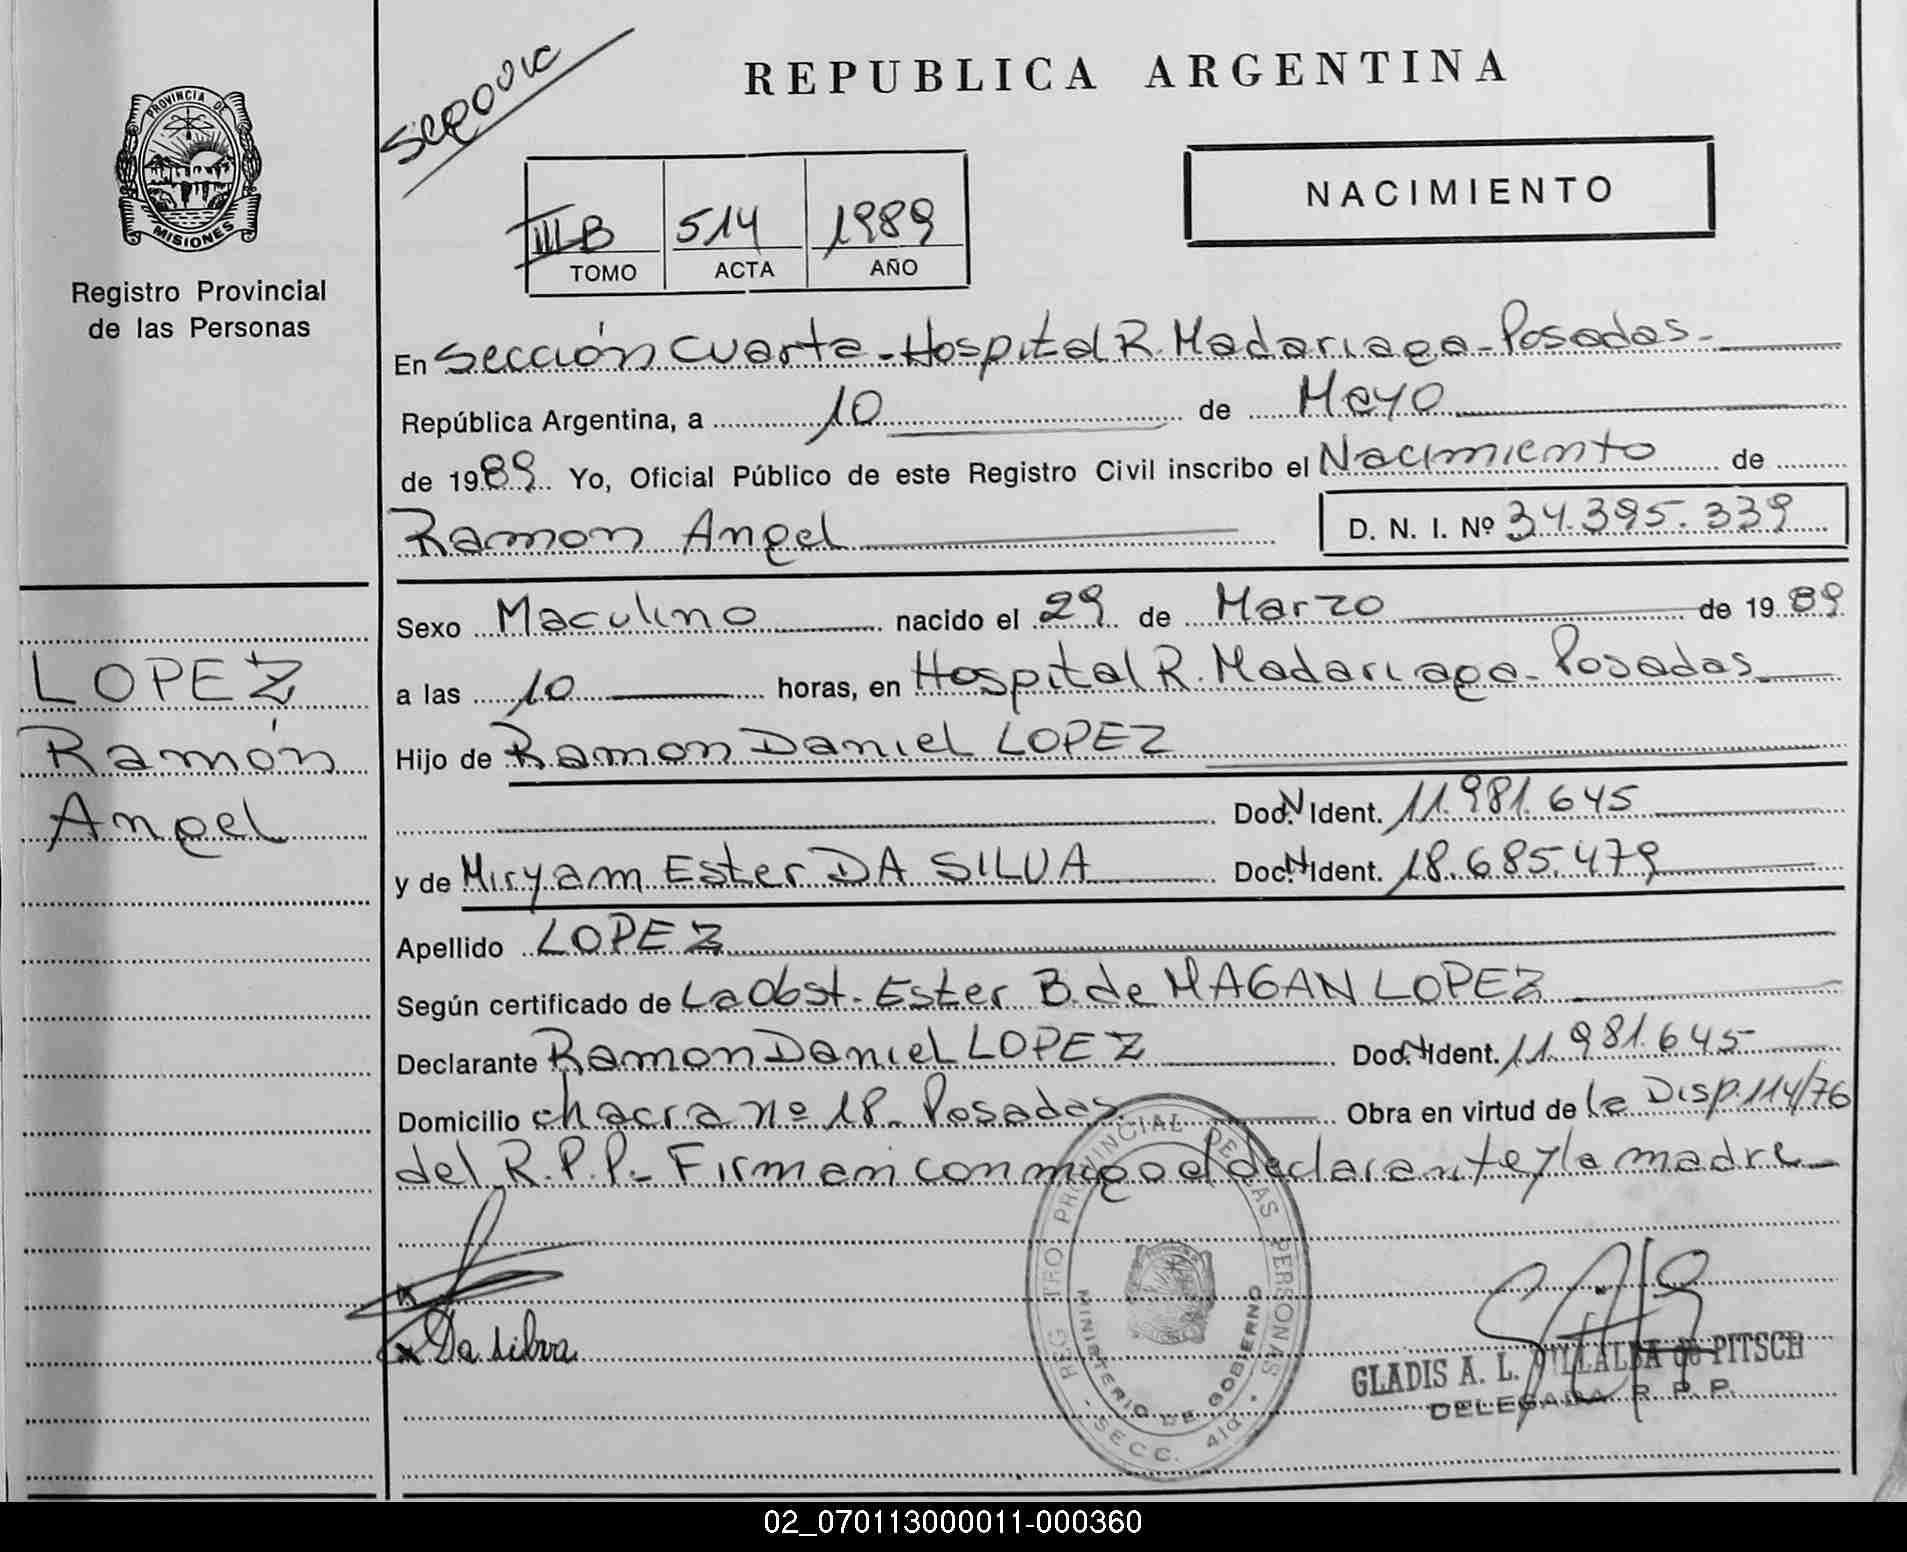 REPUBLICA ARGENTINA
PROVINCIA DE
MISIONES
Registro Provincial
de las Personas
NACIMIENTO
III B 514 1989
TOMO ACTA AÑO
En Sección Cuarta - Hospital R. Madariaga - Posadas -
República Argentina, a 10 de Mayo
de 1989. Yo, Oficial Público de este Registro Civil inscribo el Nacimiento de
Ramon Angel D. N. I. Nº 34.395.339
Sexo Maculino nacido el 29 de Marzo de 1989
a las 10 horas, en Hospital R. Madariaga - Posadas
Hijo de Ramon Daniel LOPEZ
Doc. N Ident. 11.981.645
y de Miryam Ester DA SILVA Doc. N Ident. 18.685.479
Apellido LOPEZ
Según certificado de La Obst. Ester B. de MAGAN LOPEZ
Declarante Ramon Daniel LOPEZ Doc. N Ident. 11.981.645
Domicilio chacra nº 18 - Posadas Obra en virtud de la Disp. 114/76
del R.P.P. - Firman conmigo el declarante y la madre
LOPEZ
Ramón
Angel
Da silva
REGISTRO PROVINCIAL DE LAS PERSONAS
MINISTERIO DE GOBIERNO
- SECC. 4ta. -
GLADIS A. L. VILLALBA de PITSCH
DELEGADA R. P. P.
02_070113000011-000360